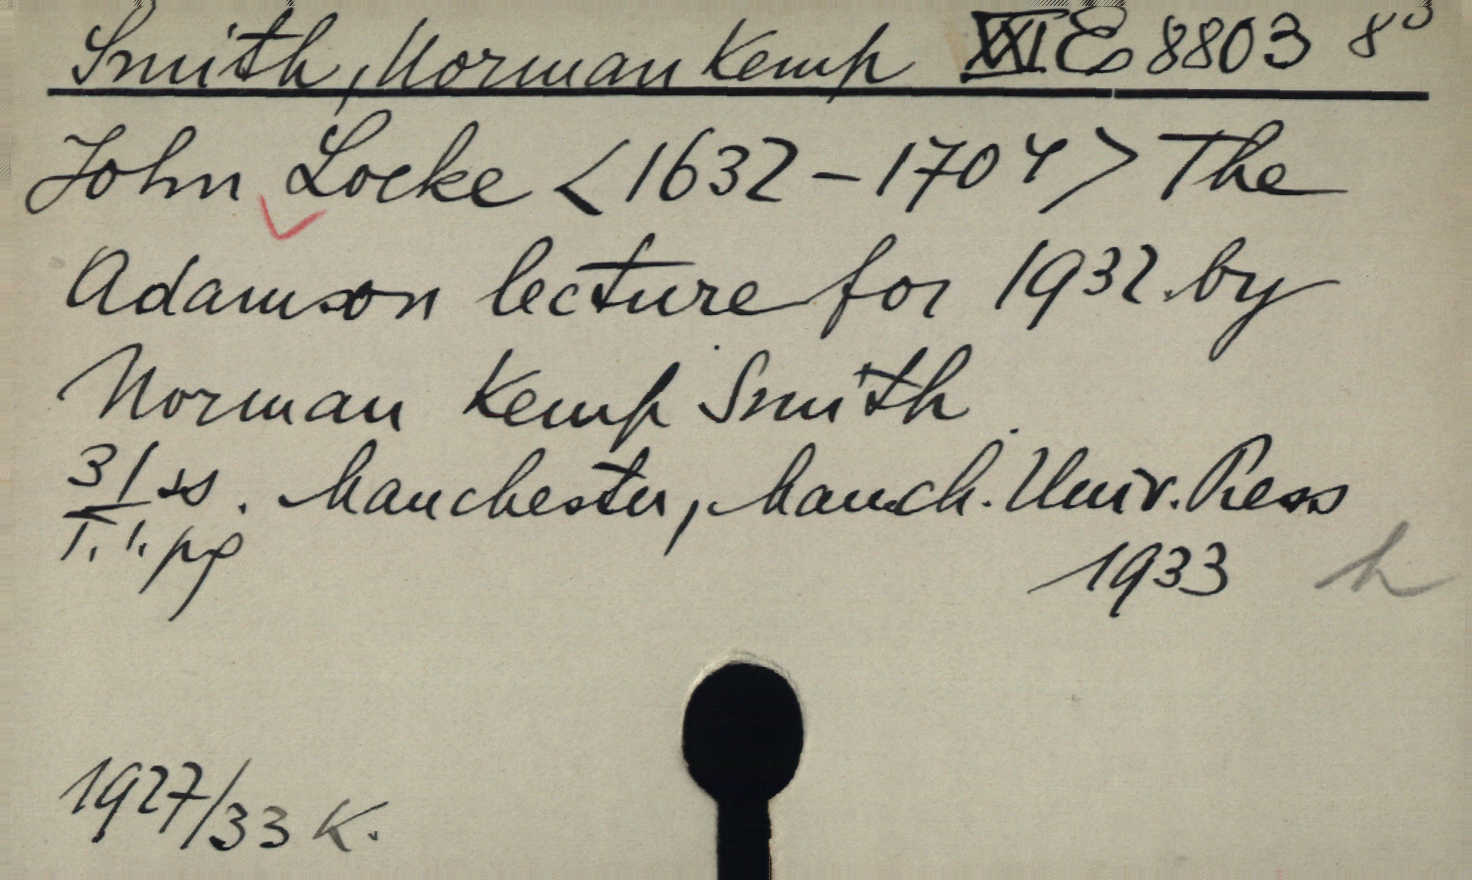 Smith, Norman Kemp XXI E 8803 8°
John Locke <1632-1704> The
Adamson lecture for 1932 by
Norman Kemp Smith.
31 ss. Manchester, Manch. Univ. Press
T. 1. pg 1933 h
1927/33 K.